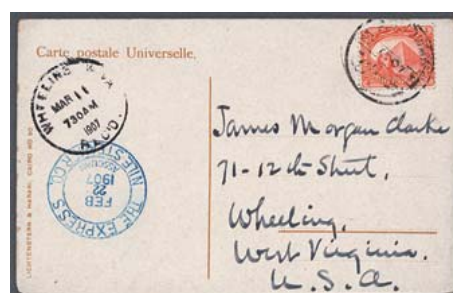 Carte postale Universelle.
WHEELING W.VA
MAR 11
730AM
1907
REC'D.
THE EXPRESS
NILE ST
R CO.
FEB
22
1907
LICHTENSTERN & HARARI, CAIRO
1907
James Morgan Clarke
71-12th Street,
Wheeling,
West Virginia.
U.S.A.